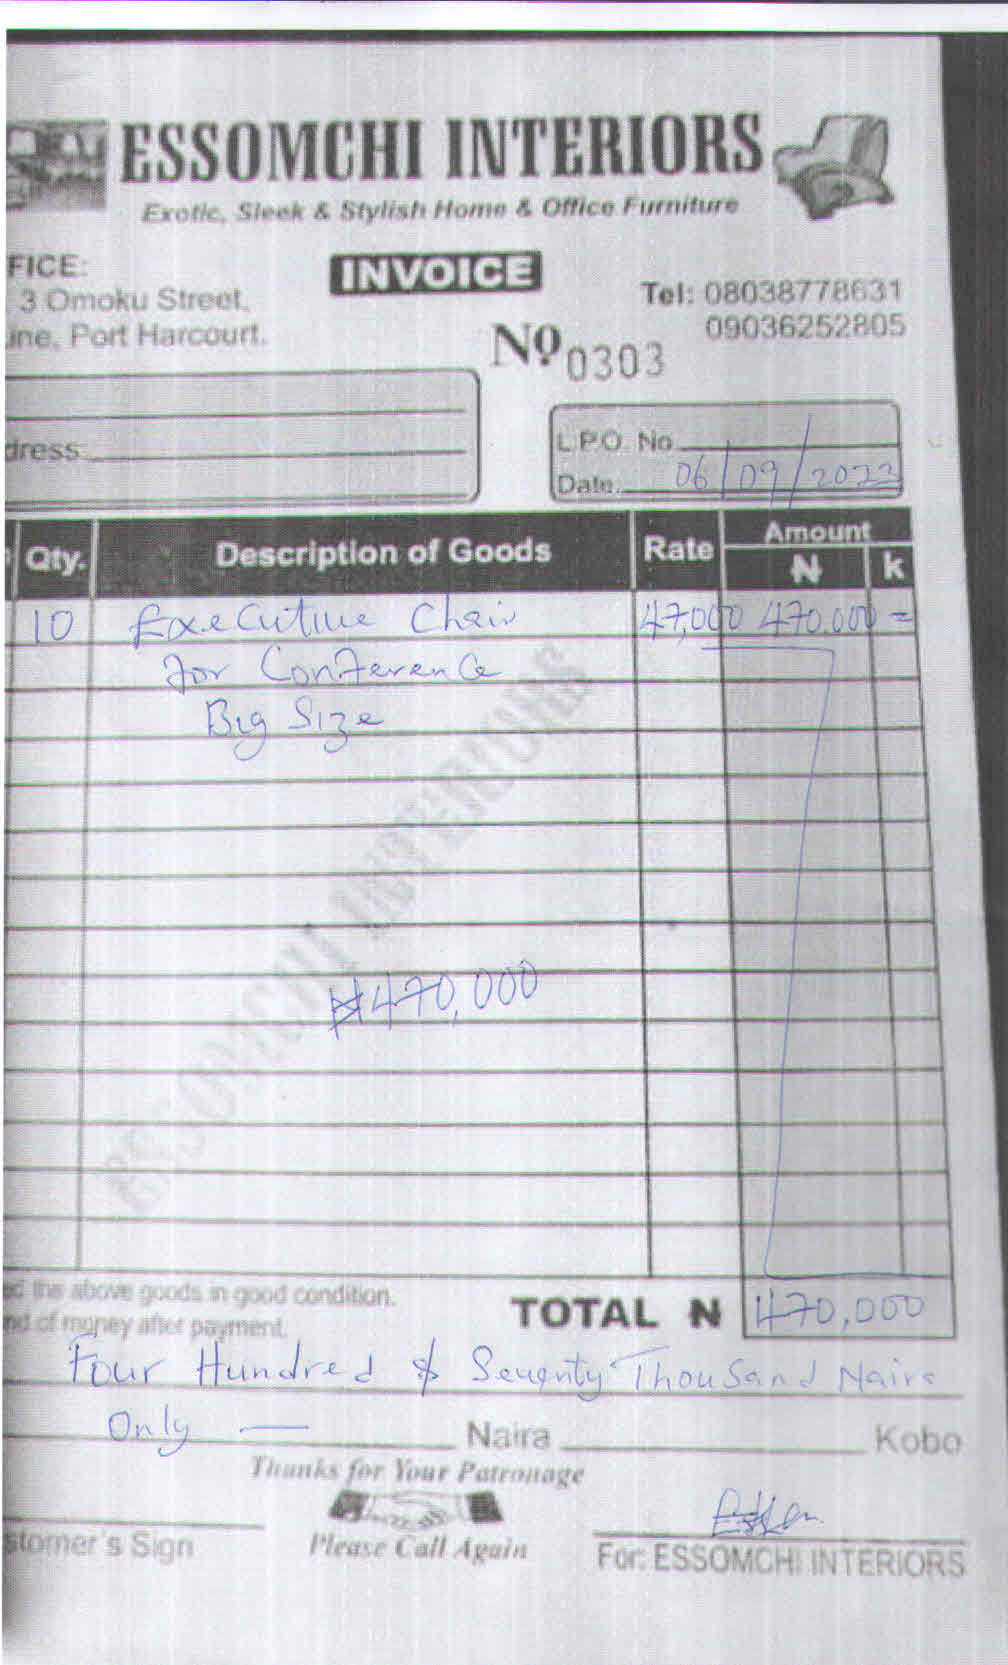 ESSOMCHI INTERIORS
Exotic, Sleek & Stylish Home & Office Furniture
FICE:
3 Omoku Street,
ine, Port Harcourt.
INVOICE
Tel: 08038778631
09036252805
№ 0303
dress
L.P.O. No
Date: 06/09/2022
Qty. Description of Goods Rate Amount
₦ k
10 Executive Chair 47,000 470.000 =
for Conference
Big Size
₦470,000
ESSOMCHI INTERIORS
ed the above goods in good condition.
nd of money after payment.
TOTAL ₦ 470,000
Four Hundred & Seventy Thousand Naira
Only — Naira Kobo
Thanks for Your Patronage
Please Call Again
stomer's Sign
For: ESSOMCHI INTERIORS